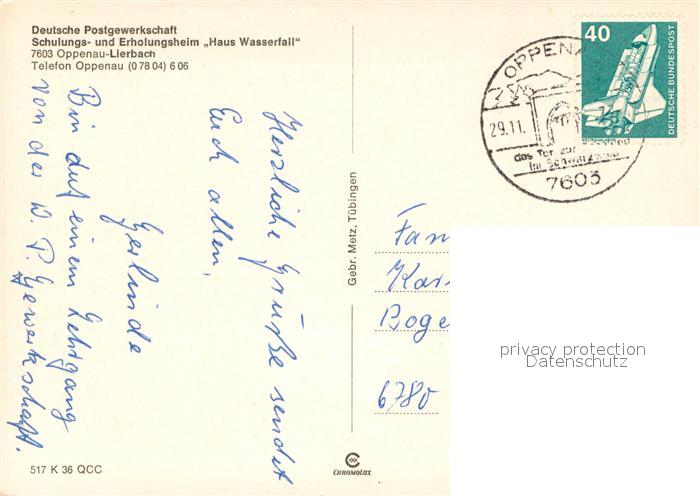 Deutsche Postgewerkschaft
Schulungs- und Erholungsheim „Haus Wasserfall"
7603 Oppenau-Lierbach
Telefon Oppenau (0 78 04) 6 06
Herzliche Grüße sendet
Euch allen,
Gerlinde
Bin auf einem Lehrgang
von der D. P. Gewerkschaft.
517 K 36 QCC
Gebr. Metz, Tübingen
CHROMOLUX
OPPENA
29.11.
das Tor zur
im Schwarzwald
7603
40
DEUTSCHE BUNDESPOST
Fam
Kar
Boge
6780
privacy protection
Datenschutz